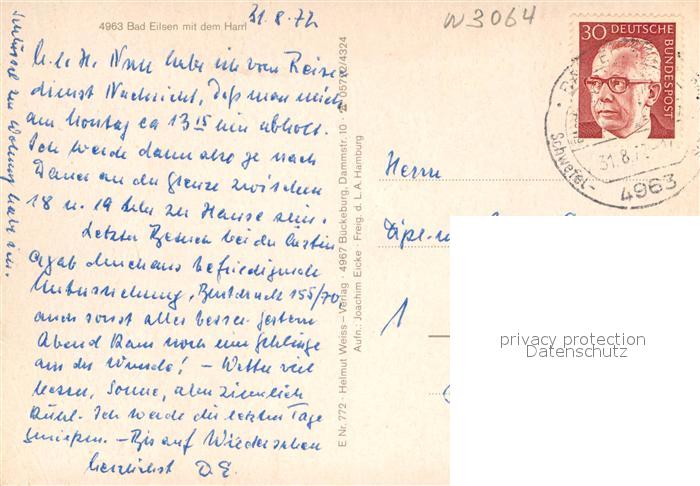 4963 Bad Eilsen mit dem Harrl
31.8.72
W3064
Nun habe ich vom Reise-
dienst Nachricht, daß man mich
am Montag ca 13 15 abholt.
Ich werde dann also je nach
Dauer an der Grenze zwischen
18 u. 19 Uhr zu Hause sein.
Letzter Besuch bei der Ärztin
ergab durchaus befriedigende
Untersuchung, Blutdruck 155/70,
auch sonst alles besser. gestern
Abend kam noch eine
aus der Wunde! – Wetter viel
besser, Sonne, aber ziemlich
kühl. Ich werde die letzten Tage
genießen. – Bis auf Wiedersehen
herzlichst D. E.
Schlüssel zur Wohnung habe ich.
E Nr. 772 · Helmut Weiss-Verlag · 4967 Bückeburg, Dammstr. 10 · ☎ 05722/4324
Aufn.: Joachim Eicke · Freig. d. L. A. Hamburg
30 DEUTSCHE
BUNDESPOST
31.8.72
Schwefel-
4963
Herrn
Dipl.-
privacy protection
Datenschutz